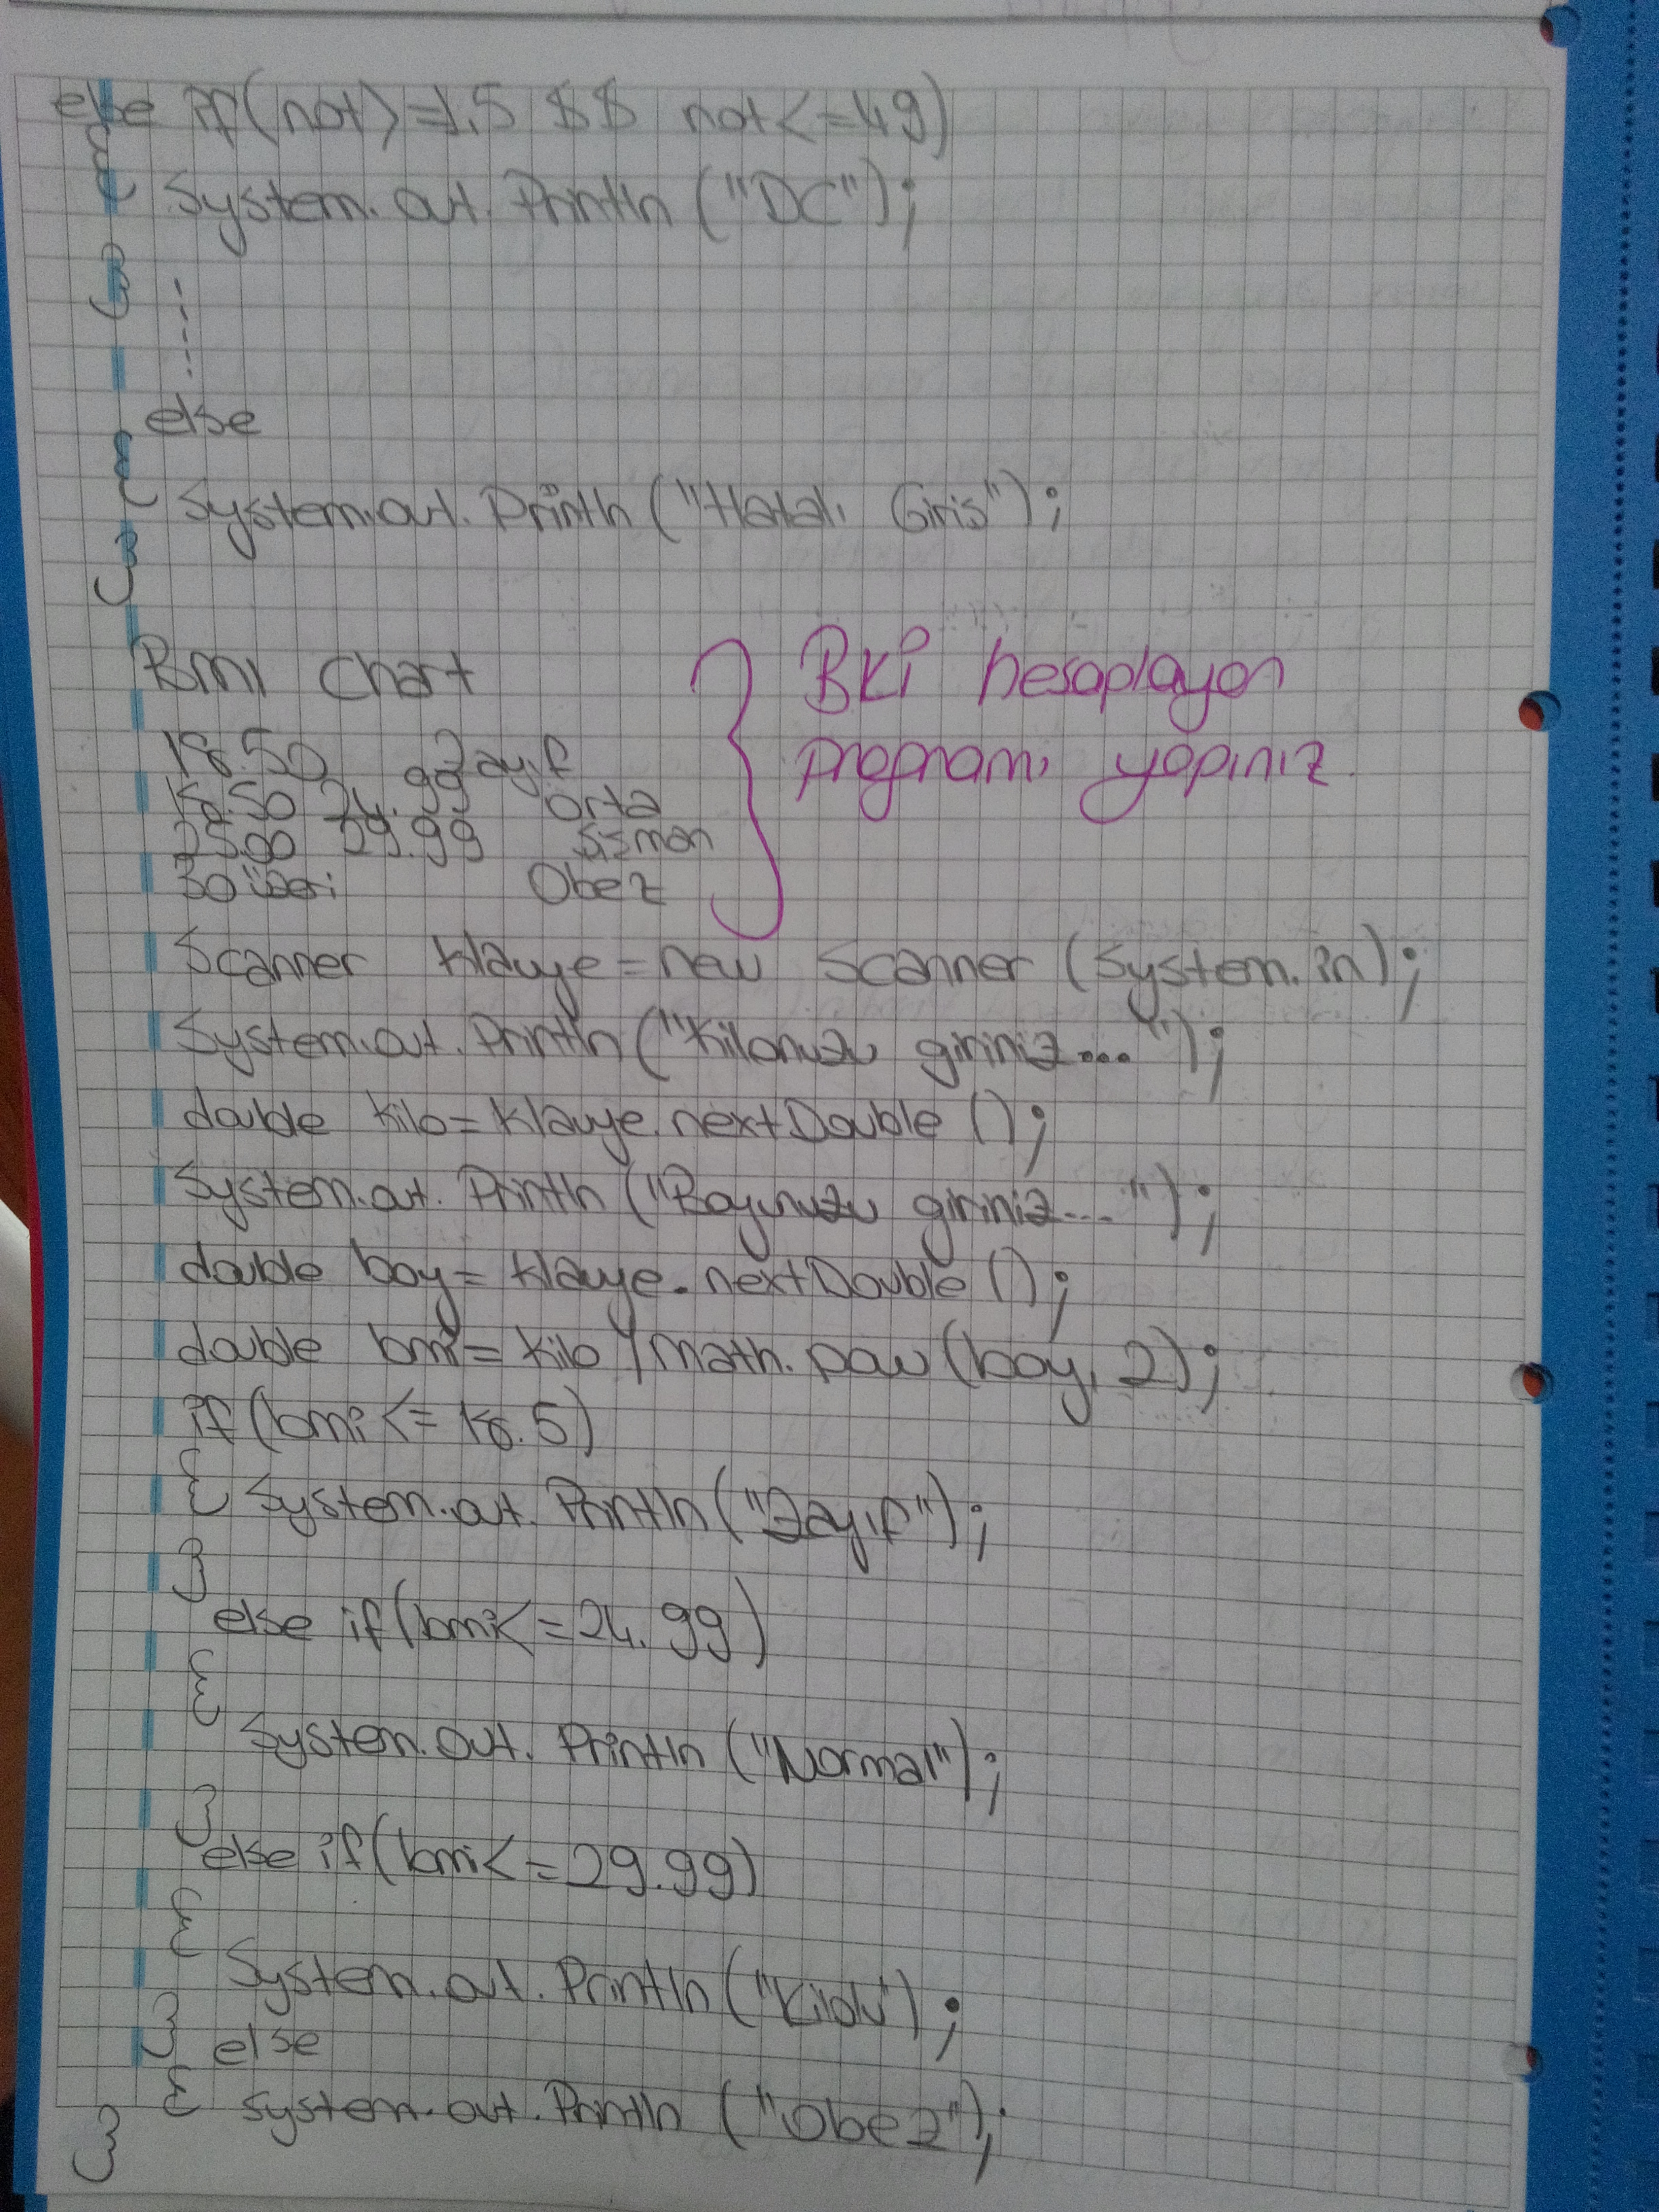 else if(not>=1.5 $$ not<=49)
{ System.out.Println ("DC");
}
else
{ System.out.Println ("Hatalı Giris");
}
BMI Chart
18.50 Zayıf
18.50 24.99 Orta
25.00 29.99 Sisman
30 üzeri Obez
BKİ hesaplayan
programı yapınız
Scanner klavye=new Scanner (System.in);
System.out.Println ("Kilonuzu giriniz...");
double kilo=klavye.nextDouble ();
System.out.Println ("Boyunuzu giriniz...");
double boy=klavye.nextDouble ();
double bmi=kilo/math.pow (boy, 2);
if (bmi<=18.5)
{ System.out.Println ("Zayıf");
}
else if (bmi<=24.99)
{
System.out.Println ("Normal");
}
else if (bmi<=29.99)
{
System.out.Println ("Kilolu");
} else
{ System.out.Println ("Obez");
}